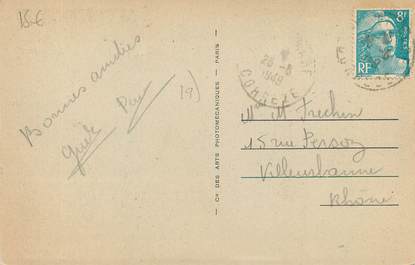 15-6
Bonnes amitiés
19)
Cie DES ARTS PHOTOMÉCANIQUES - PARIS
8F
RF
26-8
1948
CORREZE
M. M Frechin
15 rue Persoz
Villeurbanne
Rhône